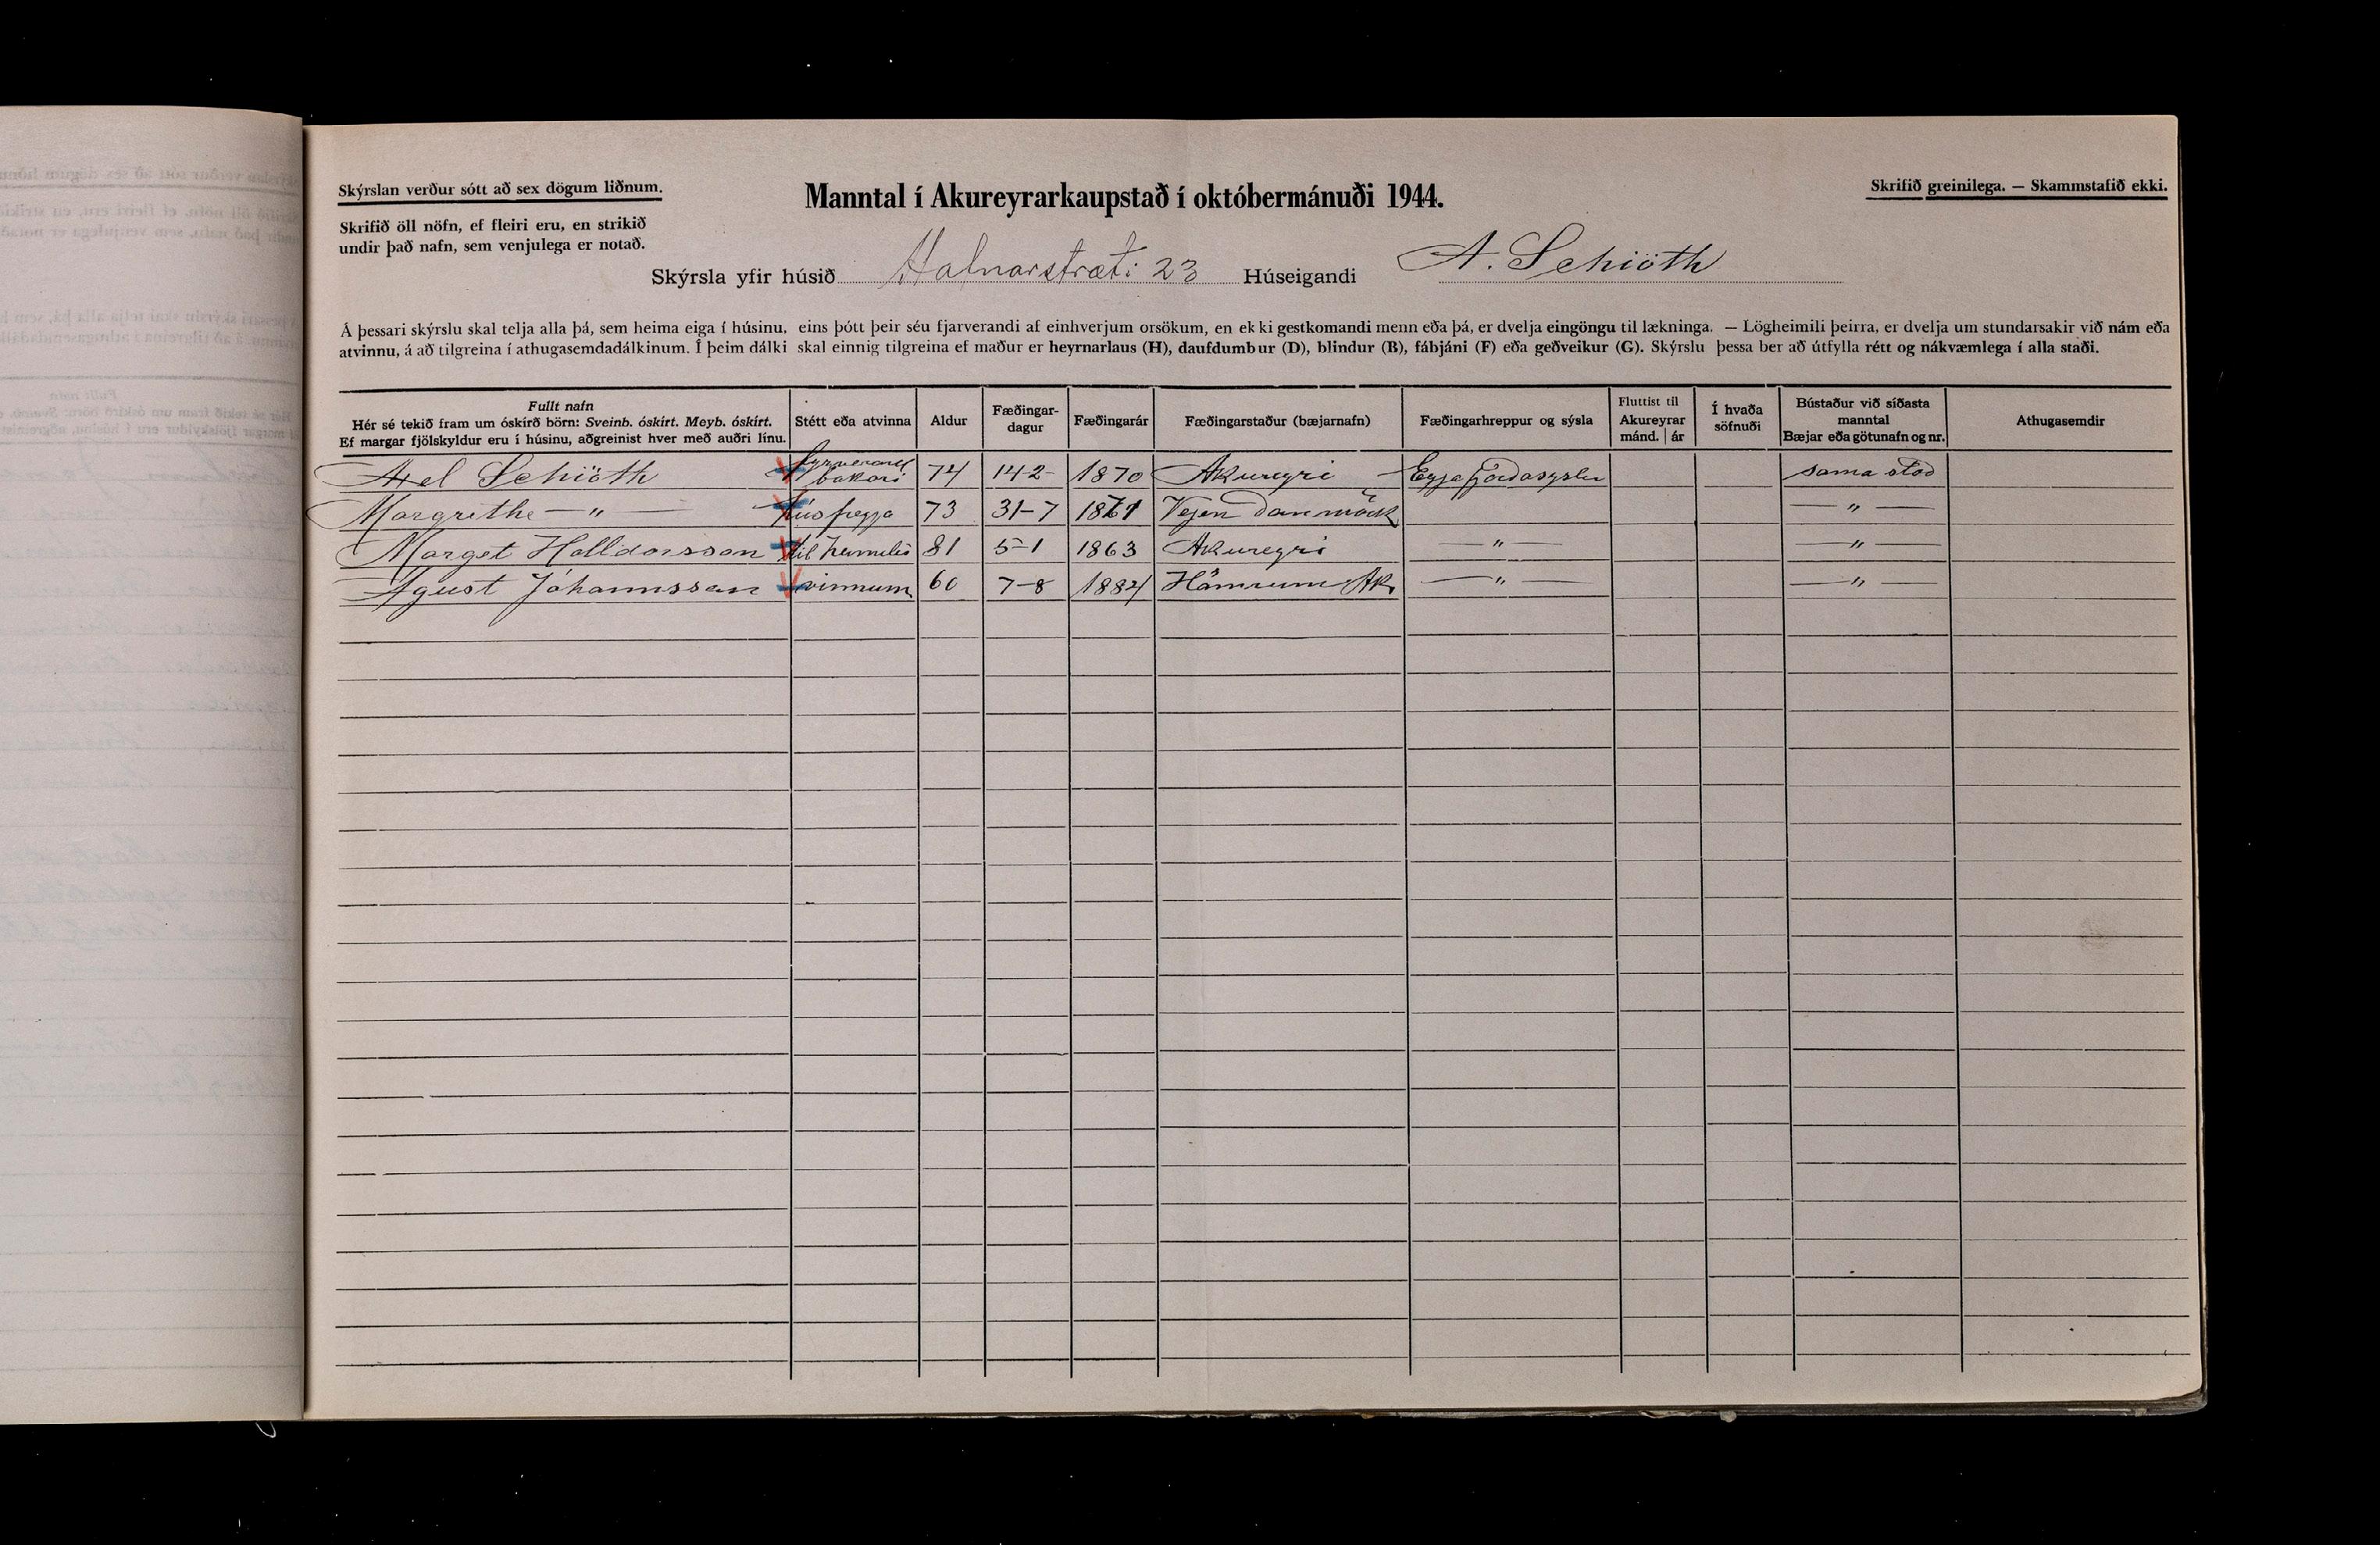 Skýrslan verður sótt að sex dögum liðnum.
Manntal í Akureyrarkaupstað í októbermánuði 1944.
Skrifið greinilega. — Skammstafið ekki.
Skrifið öll nöfn, ef fleiri eru, en strikið
undir það nafn, sem venjulega er notað.
Skýrsla yfir húsið Hafnarstræti 23 Húseigandi A. Schiöth
Á þessari skýrslu skal telja alla þá, sem heima eiga í húsinu, eins þótt þeir séu fjarverandi af einhverjum orsökum, en ekki gestkomandi menn eða þá, er dvelja eingöngu til lækninga. — Lögheimili þeirra, er dvelja um stundarsakir við nám eða
atvinnu, á að tilgreina í athugasemdadálkinum. Í þeim dálki skal einnig tilgreina ef maður er heyrnarlaus (H), daufdumbur (D), blindur (B), fábjáni (F) eða geðveikur (G). Skýrslu þessa ber að útfylla rétt og nákvæmlega í alla staði.
Fullt nafn
Hér sé tekið fram um óskírð börn: Sveinb. óskírt. Meyb. óskírt.
Ef margar fjölskyldur eru í húsinu, aðgreinist hver með auðri línu.
Stétt eða atvinna
Aldur
Fæðingar-
dagur
Fæðingarár
Fæðingarstaður (bæjarnafn)
Fæðingarhreppur og sýsla
Fluttist til
Akureyrar
mánd. | ár
Í hvaða
söfnuði
Bústaður við síðasta
manntal
Bæjar eða götunafn og nr.
Athugasemdir
Axel Schiöth bakari 74 14-2- 1870 Akureyri Eyjafjördasyslu sama stad
Margrethe — " — húsfreyja 73 31-7 1871 Vejen Danmörk — " —
Marget Halldorsson til heimilis 81 5-1 1863 Akureyri — " — — " —
Agust Jóhannsson vinnum 60 7-8 1884 Ak. — " — — " —